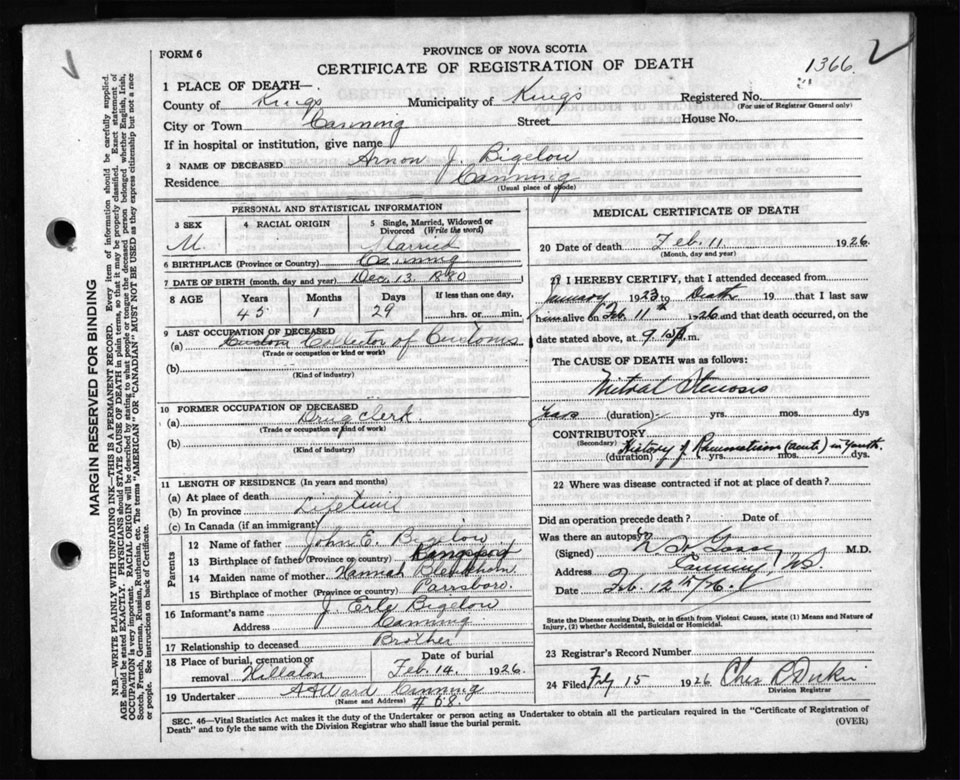 FORM 6
PROVINCE OF NOVA SCOTIA
CERTIFICATE OF REGISTRATION OF DEATH
1366
1 PLACE OF DEATH—
County of Kings Municipality of Kings Registered No.
(For use of Registrar General only)
City or Town Canning Street House No.
If in hospital or institution, give name
2 NAME OF DECEASED Arnon J. Bigelow
Residence Canning
(Usual place of abode)
PERSONAL AND STATISTICAL INFORMATION
3 SEX 4 RACIAL ORIGIN 5 Single, Married, Widowed or Divorced (Write the word)
M. Married
6 BIRTHPLACE (Province or Country) Canning
7 DATE OF BIRTH (month, day and year) Dec. 13. 1880
8 AGE Years Months Days If less than one day,
45 1 29 hrs. or min.
9 LAST OCCUPATION OF DECEASED
(a) Custom Collector of Customs
(Trade or occupation or kind of work)
(b)
(Kind of industry)
10 FORMER OCCUPATION OF DECEASED
(a) Drug Clerk
(Trade or occupation or kind of work)
(b)
(Kind of industry)
11 LENGTH OF RESIDENCE (In years and months)
(a) At place of death
(b) In province Lifetime
(c) In Canada (if an immigrant)
Parents
12 Name of father John E. Bigelow
13 Birthplace of father (Province or country) Kingsport
14 Maiden name of mother Hannah Blenkhorn
15 Birthplace of mother (Province or country) Parrsboro.
16 Informant's name J. Erle Bigelow
Address Canning
17 Relationship to deceased Brother
18 Place of burial, cremation or removal Hillaton Date of burial Feb 14. 1926
19 Undertaker A A Ward Canning
(Name and Address) # 68.
MEDICAL CERTIFICATE OF DEATH
20 Date of death Feb. 11 1926
(Month, day and year)
21 I HEREBY CERTIFY, that I attended deceased from
January 1923 to Death 19 that I last saw
him alive on Feb 11th 1926 and that death occurred, on
date stated above, at 9.
The CAUSE OF DEATH was as follows:
Mitral Stenosis
Years (duration) yrs. mos. dys
CONTRIBUTORY
(Secondary) History of Rheumatism (acute) in Youth.
(duration) yrs. mos. dys.
22 Where was disease contracted if not at place of death?
Did an operation precede death? Date of
Was there an autopsy?
(Signed) M.D.
Address Canning, NS
Date Feb. 12th/26.
State the Disease causing Death, or in death from Violent Causes, state (1) Means and Nature of Injury, (2) whether Accidental, Suicidal or Homicidal.
23 Registrar's Record Number
24 Filed 15 1926
Division Registrar
SEC. 46—Vital Statistics Act makes it the duty of the Undertaker or person acting as Undertaker to obtain all the particulars required in the "Certificate of Registration of
Death" and to fyle the same with the Division Registrar who shall issue the burial permit. (OVER)
MARGIN RESERVED FOR BINDING
N.B.—WRITE PLAINLY WITH UNFADING INK—THIS IS A PERMANENT RECORD. Every item of information should be carefully supplied.
AGE should be stated EXACTLY. PHYSICIANS should STATE CAUSE OF DEATH in plain terms, so that it may be properly classified. Exact statement of
OCCUPATION is very important. RACIAL ORIGIN will be described by stating to what people or tongue the deceased person belonged whether English, Irish,
Scotch, French, German, Russian, Ruthenian, etc. The terms "AMERICAN" OR "CANADIAN" MUST NOT BE USED as they express citizenship but not a race
or people. See instructions on back of Certificate.